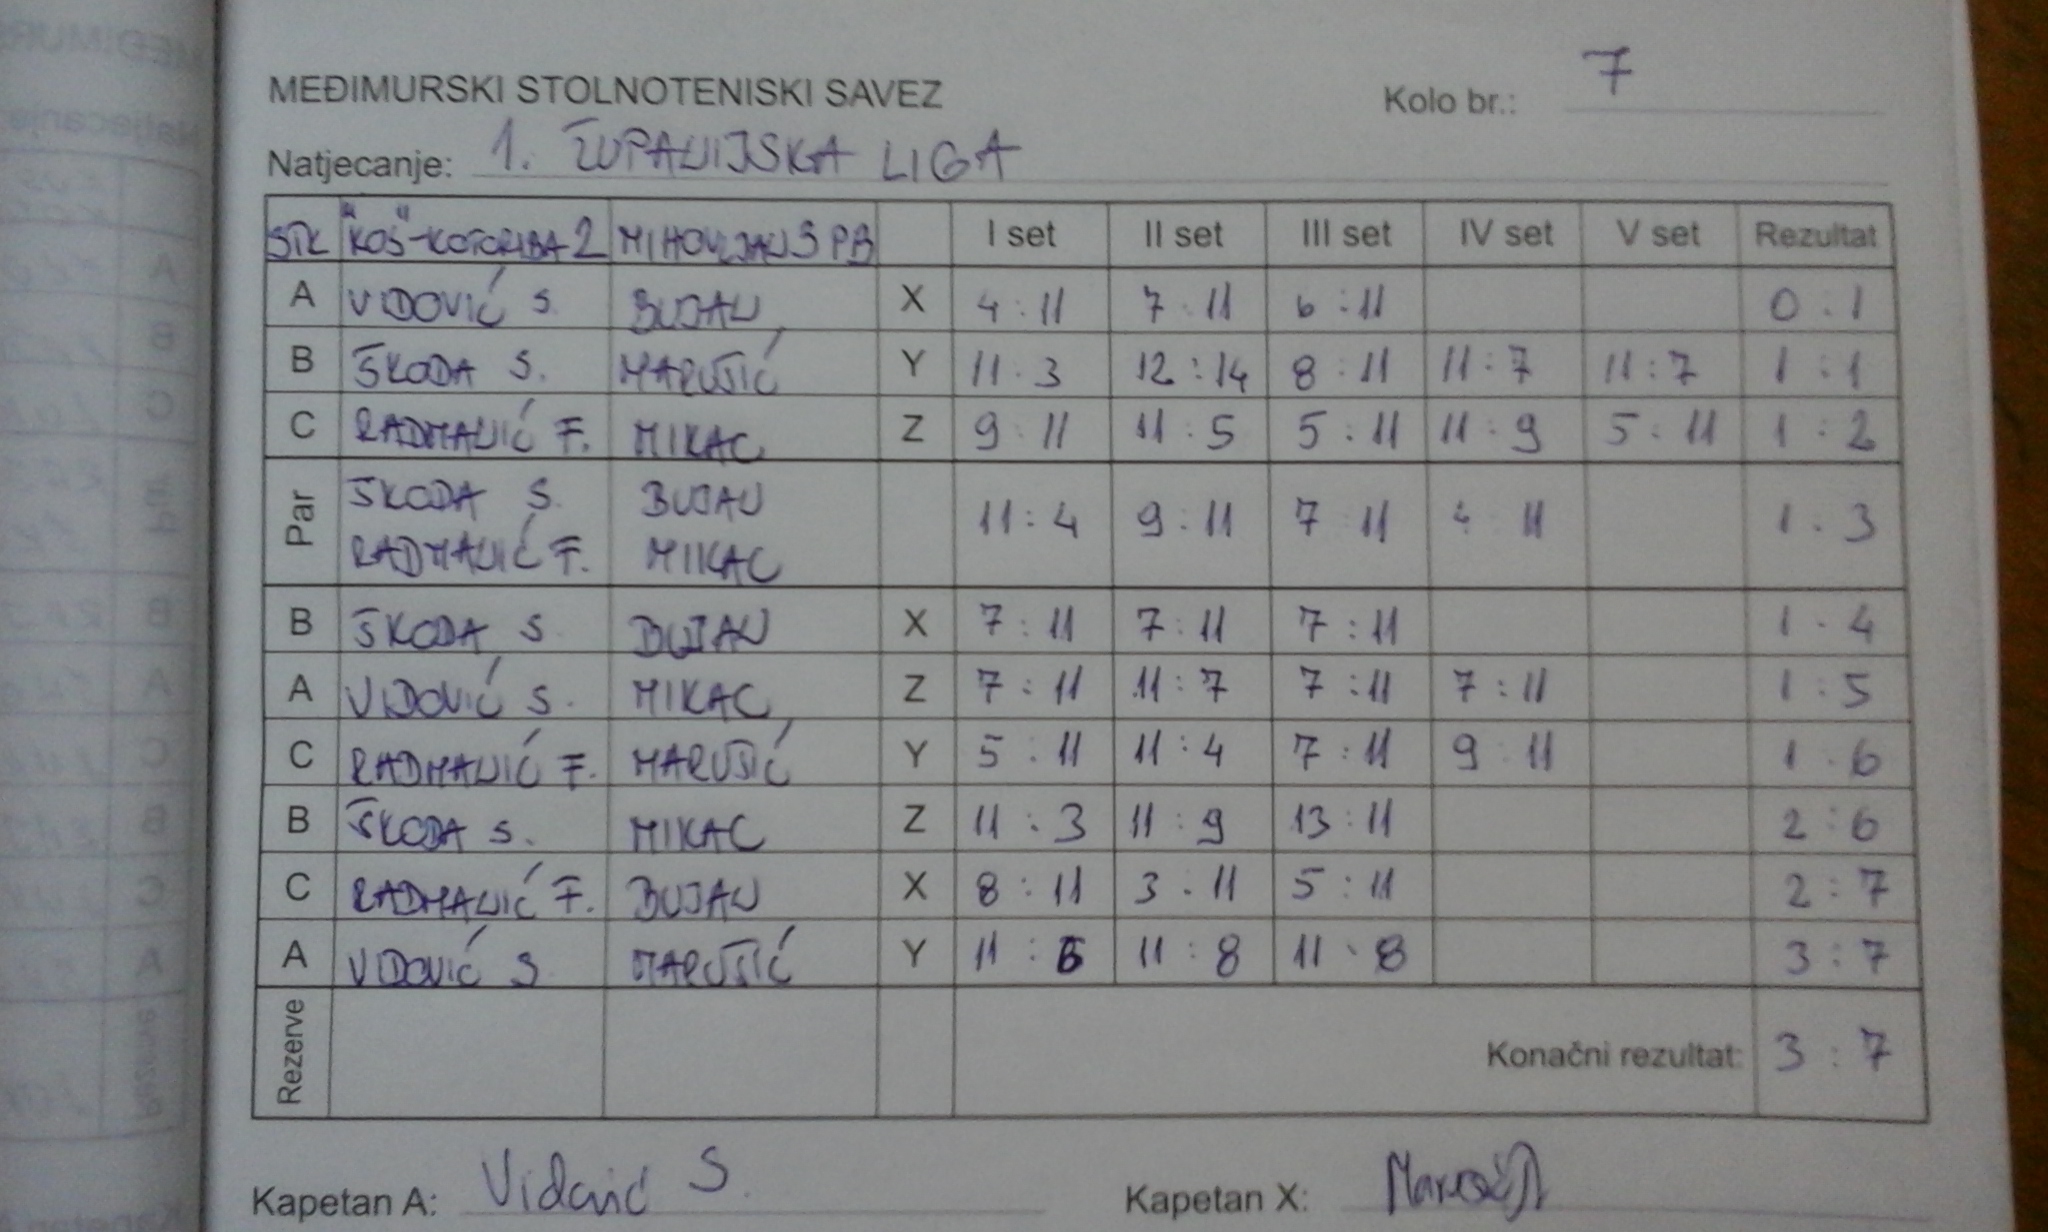 MEĐIMURSKI STOLNOTENISKI SAVEZ Kolo br.: 7
Natjecanje: 1. ŽUPANIJSKA LIGA
STK "KOŠ"-KOTORIBA 2 MIHOVLJAN 3 PB I set II set III set IV set V set Rezultat
A VIDOVIĆ S. BUJAN X 4:11 7:11 6:11 0:1
B ŠKODA S. MARUŠIĆ Y 11:3 12:14 8:11 11:7 11:7 1:1
C RADMANIĆ F. MIKAC Z 9:11 11:5 5:11 11:9 5:11 1:2
Par ŠKODA S. BUJAN 11:4 9:11 7:11 4:11 1:3
RADMANIĆ F. MIKAC
B ŠKODA S. BUJAN X 7:11 7:11 7:11 1:4
A VIDOVIĆ S. MIKAC Z 7:11 11:7 7:11 7:11 1:5
C RADMANIĆ F. MARUŠIĆ Y 5:11 11:4 7:11 9:11 1:6
B ŠKODA S. MIKAC Z 11:3 11:9 13:11 2:6
C RADMANIĆ F. BUJAN X 8:11 3:11 5:11 2:7
A VIDOVIĆ S. MARUŠIĆ Y 11:6 11:8 11:8 3:7
Rezerve Konačni rezultat: 3:7
Kapetan A: Vidović S. Kapetan X: